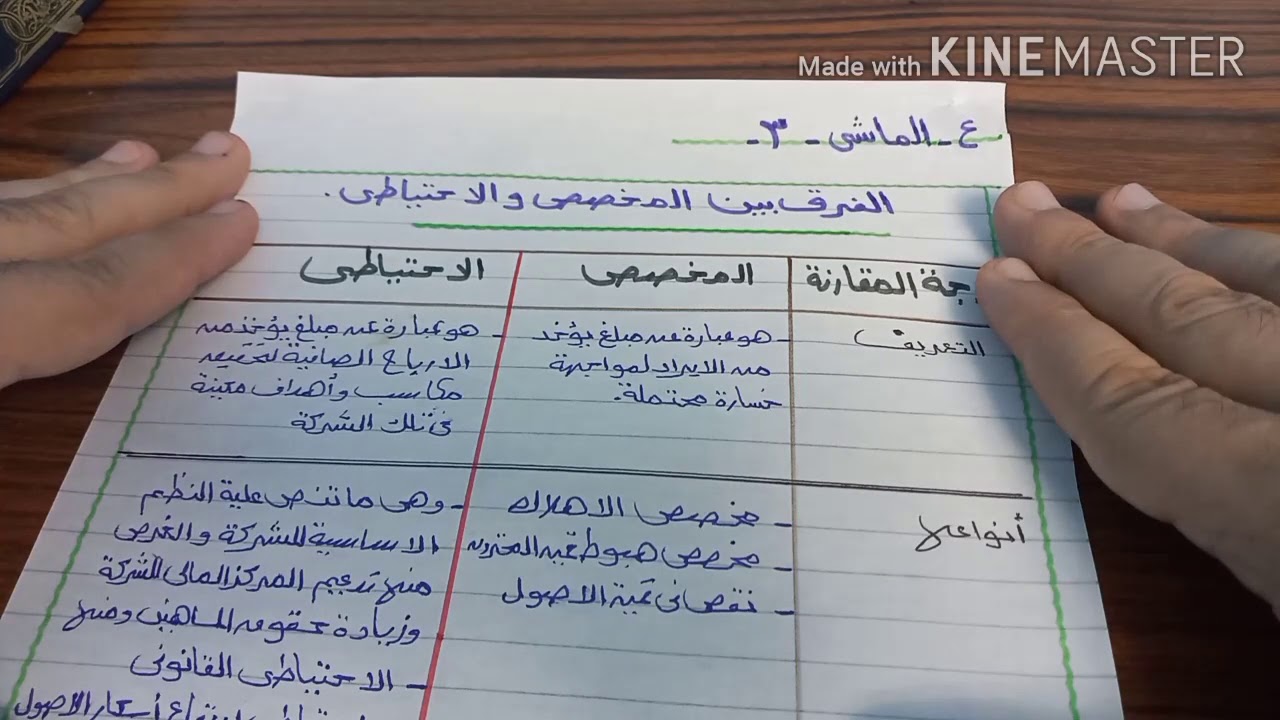 Made with KINEMASTER
ع - الماشى - ٣ -
الفرق بين المخصص والاحتياطى .
جة المقارنة
المخصص
الاحتياطى
التعريف
- هو عبارة عن مبلغ يؤخذ
من الايراد لمواجهة
خسارة محتملة .
- هو عبارة عن مبلغ يؤخذ من
الارباح الصافية لتحقيق
مكاسب وأهداف معينة
فى تلك الشركة
أنواعها
- مخصص الاهلاك
- مخصص هبوط المخزون
- نقص فى قمية الاصول
- وهى ما تنص علية النظم
الاساسية للشركة والغرض
منها تدعيم المركز المالى للشركة
وزيادة حقوق المساهمين ومنها
- الاحتياطى القانونى
أسعار الاصول